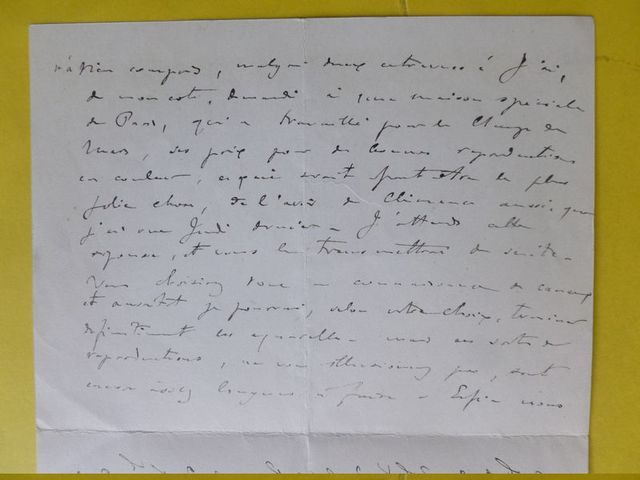 n'a rien compris, malgré deux entrevues à J'ai,
de mon coté, demandé à une maison spéciale
de Paris, qui a travaillé pour le
ses prix pour de bonnes reproductions
en couleur, ce qui serait peut être la plus
jolie chose, de l'avis de Clémence aussi que
j'ai vue Jeudi dernier - J'attends cette
réponse, et vous la transmettrai de suite -
Vous choisirez donc en connaissance de cause
et aussitot je pourrai, selon votre choix, terminer
définitivement les aquarelles - mais ces sortes de
reproductions, ne vous illusionnez pas, sont
encore assez longues à faire - Enfin nous